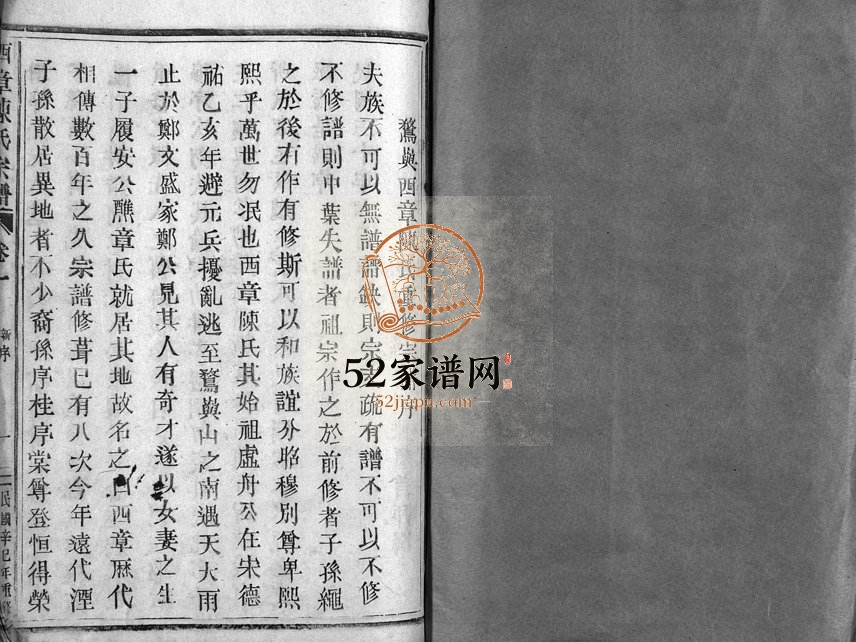 鶩與西章陳氏重修宗譜序
夫族不可以無譜譜缺則宗疏有譜不可以不修
不修譜則中葉失譜者祖宗作之於前修者子孫繩
之於後有作有修斯可以和族誼分昭穆別尊卑熙
熙乎萬世勿泯也西章陳氏其始祖虛舟公在宋德
祐乙亥年避元兵擾亂逃至鶩與山之南遇天大雨
止於鄭文盛家鄭公見其人有奇才遂以女妻之生
一子履安公贅章氏就居其地故名之曰西章厯代
相傳數百年之久宗譜修葺已有八次今年遠代湮
子孫散居異地者不少裔孫序桂序棠尊登恒得榮
西章陳氏宗譜 卷一 新序 一 民國辛巳年重修
52家谱网
52jiapu.com